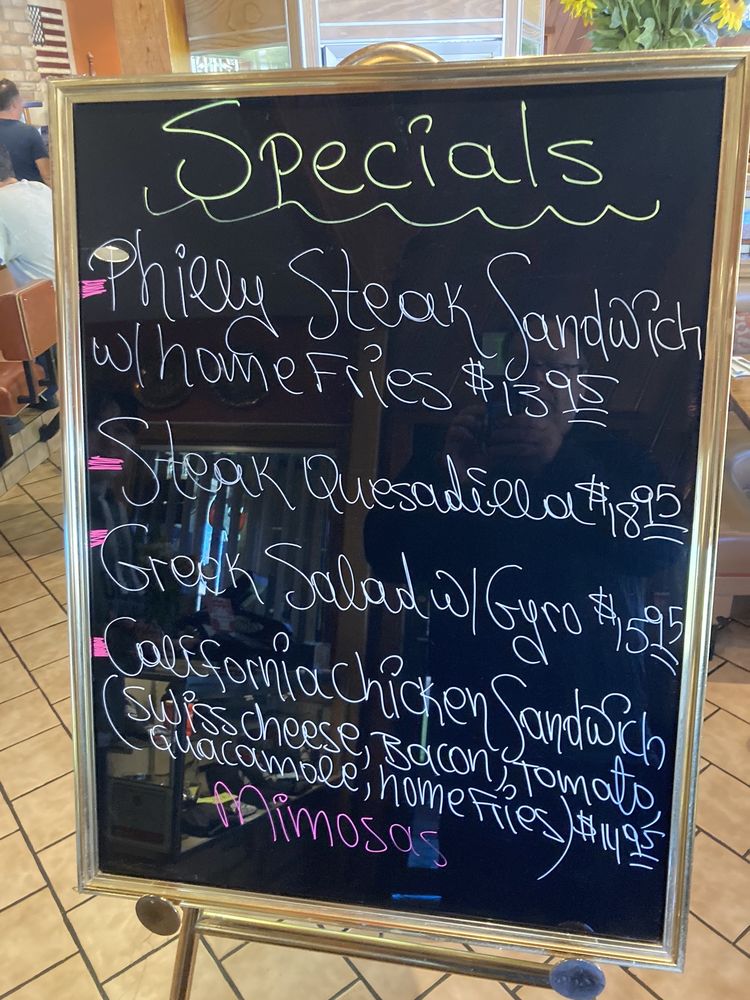 Specials
Philly Steak Sandwich
w/home Fries $13.95
Steak Quesadilla $18.95
Greek Salad w/Gyro $15.95
California chicken Sandwich
(swiss cheese, Bacon, Tomato,
guacamole, home Fries) $14.95
Mimosas